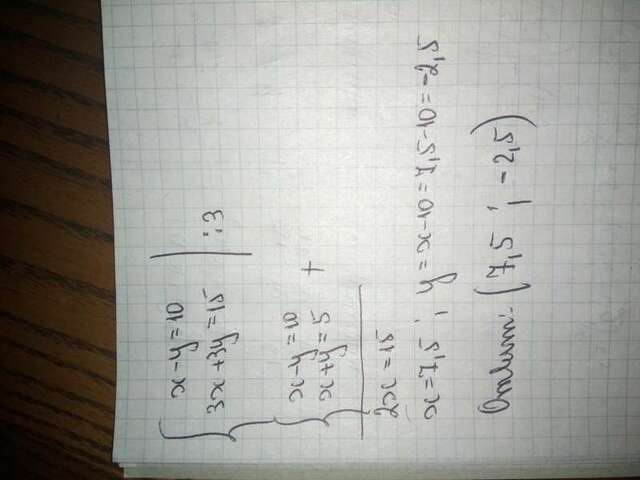 x-y=10
3x+3y=15 | :3
x-y=10
x+y=5 +
2x=15
x=7,5 ; y=x-10=7,5-10=-2,5
Ответ: (7,5 ; -2,5)